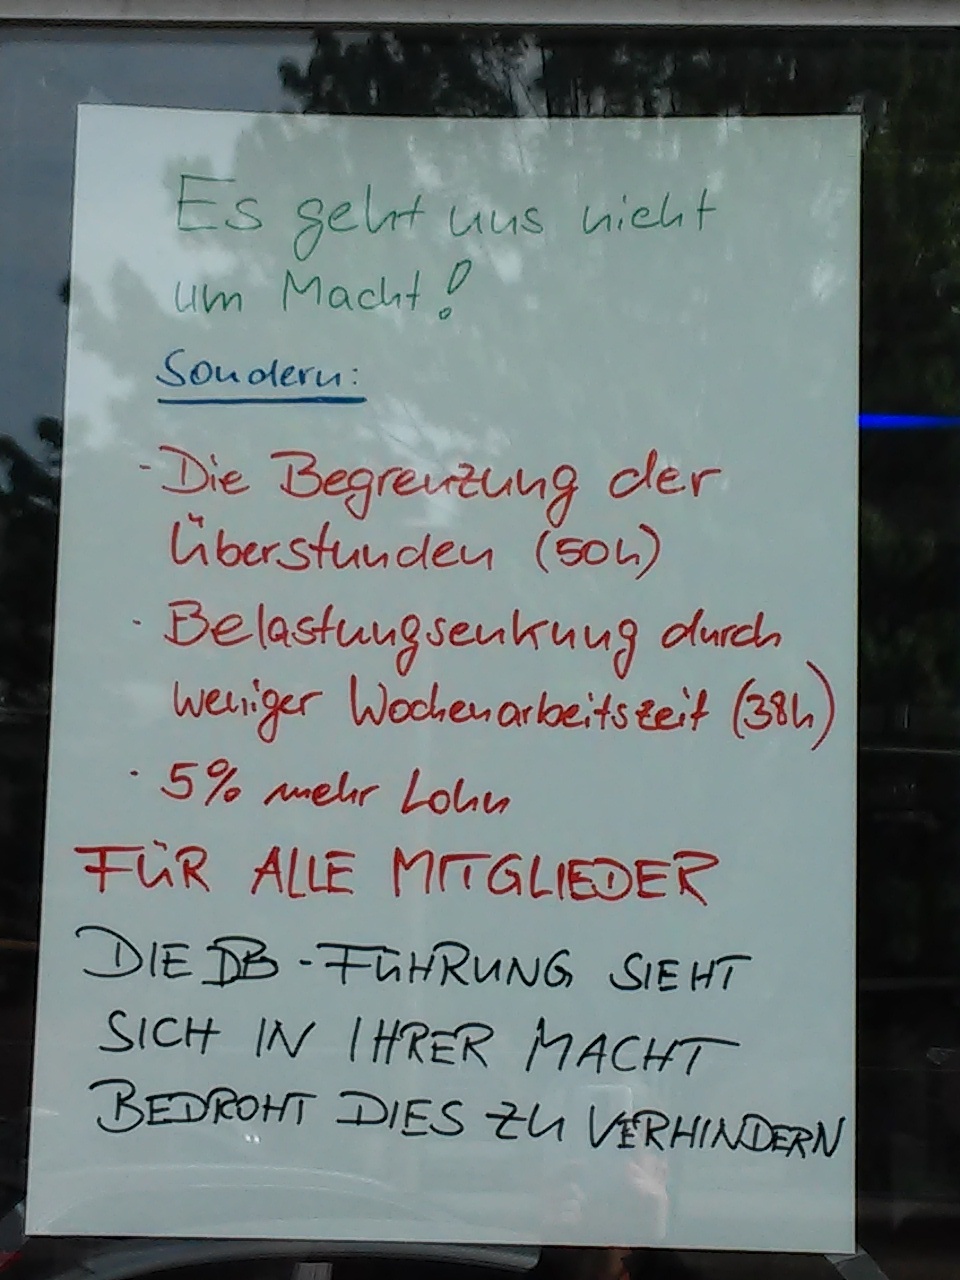 Es geht uns nicht
um Macht!
Sondern:
- Die Begrenzung der
Überstunden (50h)
· Belastungsenkung durch
weniger Wochenarbeitszeit (38h)
· 5% mehr Lohn
FÜR ALLE MITGLIEDER
DIE DB-FÜHRUNG SIEHT
SICH IN IHRER MACHT
BEDROHT DIES ZU VERHINDERN